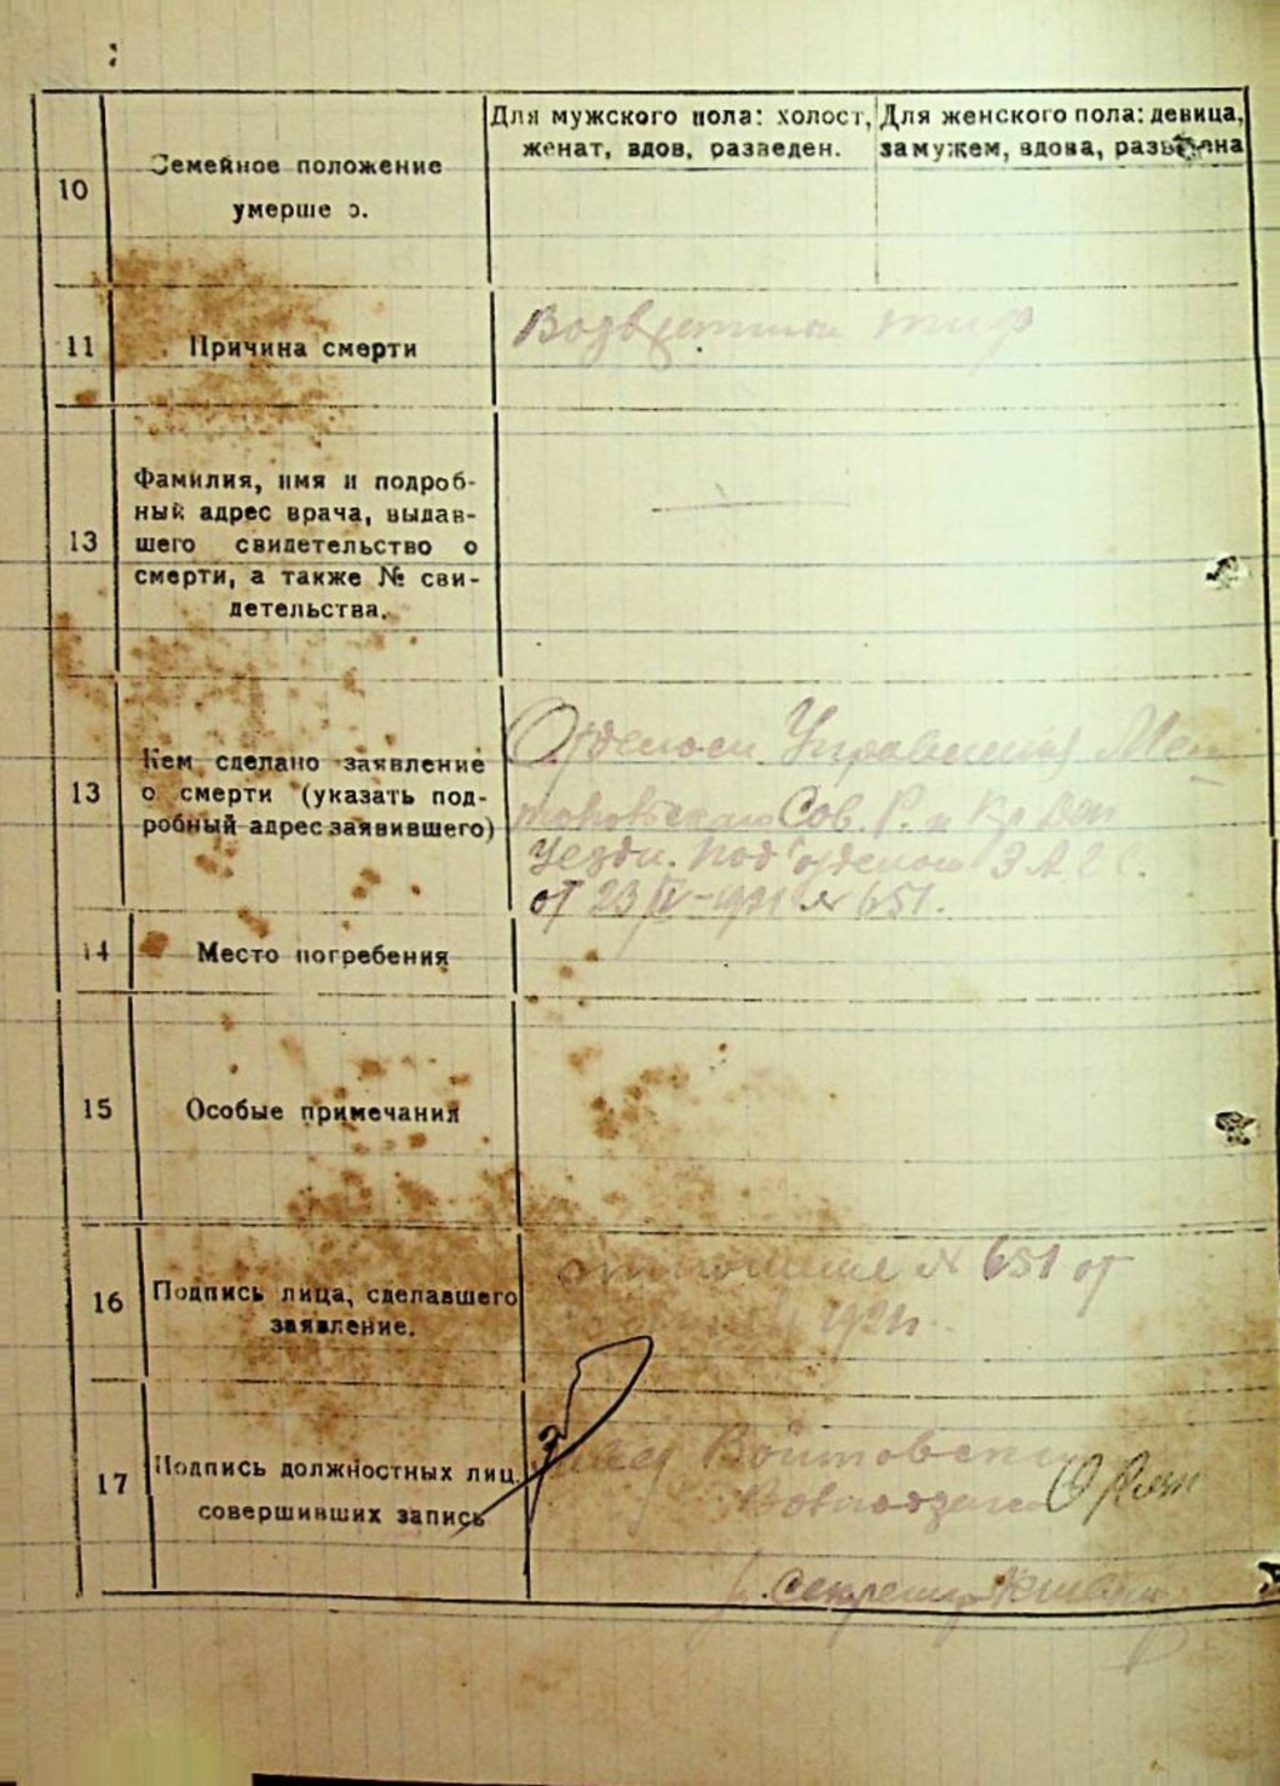 10
Семейное положение
умерше о.
Для мужского пола: холост,
женат, вдов, разведен.
Для женского пола: девица,
замужем, вдова, разведена
11
Причина смерти
Возвратный тиф
13
Фамилия, имя и подроб-
ный адрес врача, выдав-
шего свидетельство о
смерти, а также № сви-
детельства.
13
Кем сделано заявление
о смерти (указать под-
робный адрес заявившего)
Отделом Управления
Сов. Р. и Кр Деп
Уездн. Под'отделом ЗАГС.
от 23/IV-1921 № 651.
14
Место погребения
15
Особые примечания
16
Подпись лица, сделавшего
заявление.
отношение № 651 от
1921г.
17
Подпись должностных лиц,
совершивших запись
Секретарь